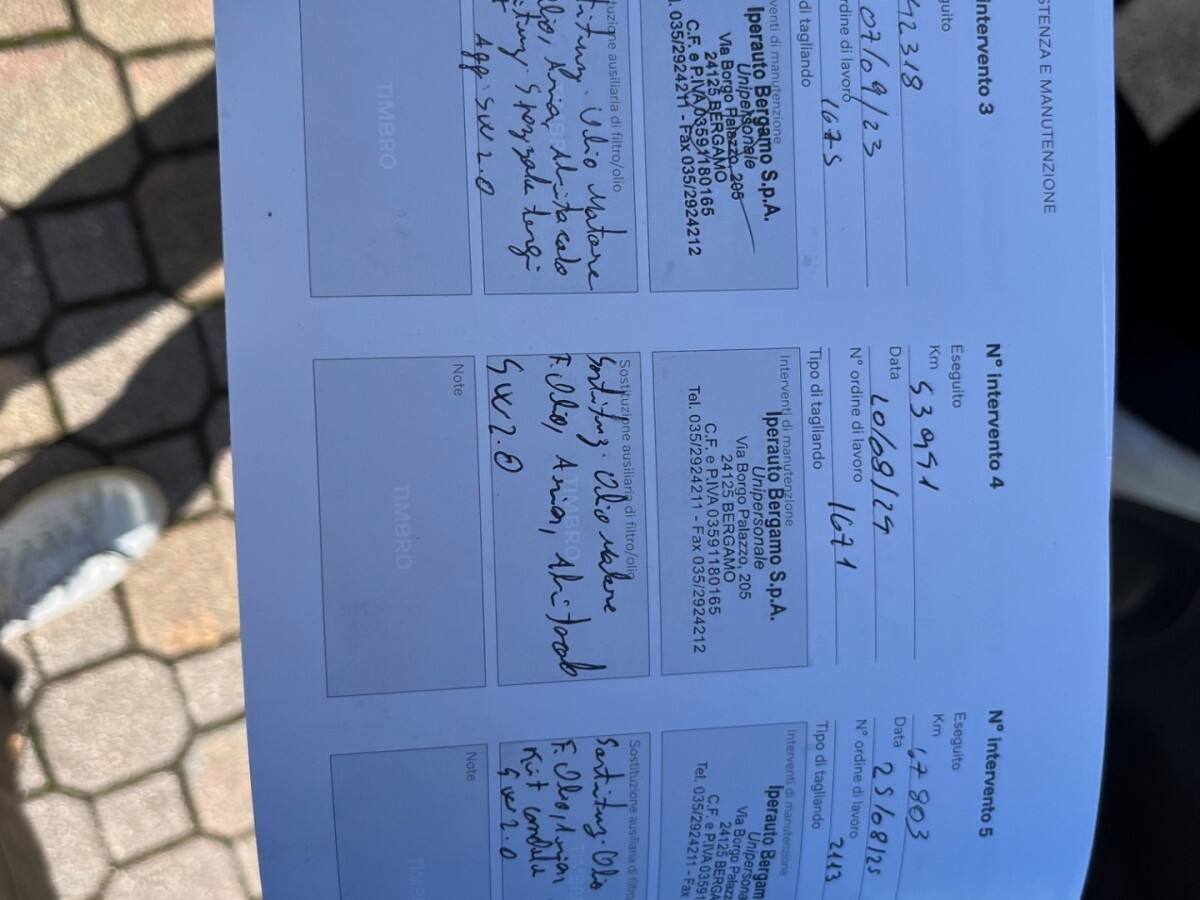 STENZA E MANUTENZIONE
intervento 3
eguito
42318
07/09/23
ordine di lavoro
1675
di tagliando
venti di manutenzione
Iperauto Bergamo S.p.A.
Unipersonale
Via Borgo Palazzo, 205
24125 BERGAMO
C.F. e P.IVA 03591180165
l. 035/2924211 - Fax 035/2924212
tuzione ausiliaria di filtro/olio
Olio Motore
lio, Aria, Abitacolo
Spazzole tergi
App. SW 2.0
TIMBRO
N° intervento 4
Eseguito
Km 53991
Data 20/08/24
N° ordine di lavoro 1671
Tipo di tagliando
Interventi di manutenzione
Iperauto Bergamo S.p.A.
Unipersonale
Via Borgo Palazzo, 205
24125 BERGAMO
C.F. e P.IVA 03591180165
Tel. 035/2924211 - Fax 035/2924212
Sostituzione ausiliaria di filtro/olio
Sostituz. Olio Motore
F. Olio, Aria, Abitacolo
SW 2.0
TIMBRO
Note
TIMBRO
N° intervento 5
Eseguito
Km 67803
Data 25/08/25
N° ordine di lavoro 2113
Tipo di tagliando
Interventi di manutenzione
Iperauto Bergam
Unipersona
Via Borgo Palaz
24125 BE
C.F. e P.IVA 0359
Tel. 035/2924211 - Fax
Sostituzione ausiliaria di filtro
Sostituz. Olio
F. Olio,
Kit
SW 2.0
Note
TIMB